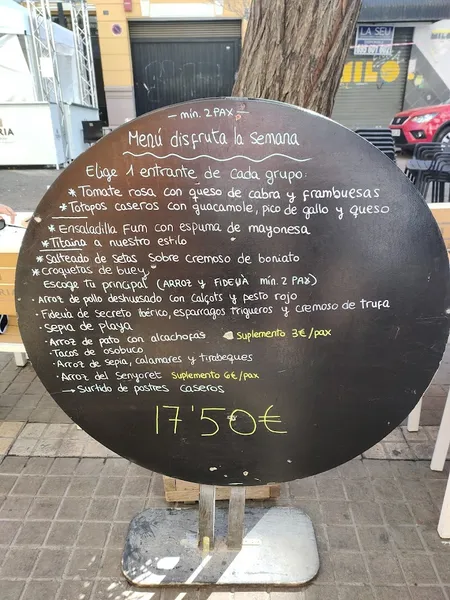 — min. 2 PAX —
Menú disfruta la semana
Elige 1 entrante de cada grupo:
* Tomate rosa con queso de cabra y frambuesas
* Totopos caseros con guacamole, pico de gallo y queso
* Ensaladilla Fum con espuma de mayonesa
* Titaina a nuestro estilo
* Salteado de setas sobre cremoso de boniato
* croquetas de buey
Escoge tu principal (ARROZ y FIDEUÀ mín. 2 PAX)
· Arroz de pollo deshuesado con calçots y pesto rojo
· Fideuà de Secreto Ibérico, esparragos trigueros y cremoso de trufa
· Sepia de playa
· Arroz de pato con alcachofas Suplemento 3€/pax
· Tacos de osobuco
· Arroz de sepia, calamares y tirabeques
· Arroz del Senyoret Suplemento 6€/pax
→ Surtido de postres caseros
17'50€
LA SEU